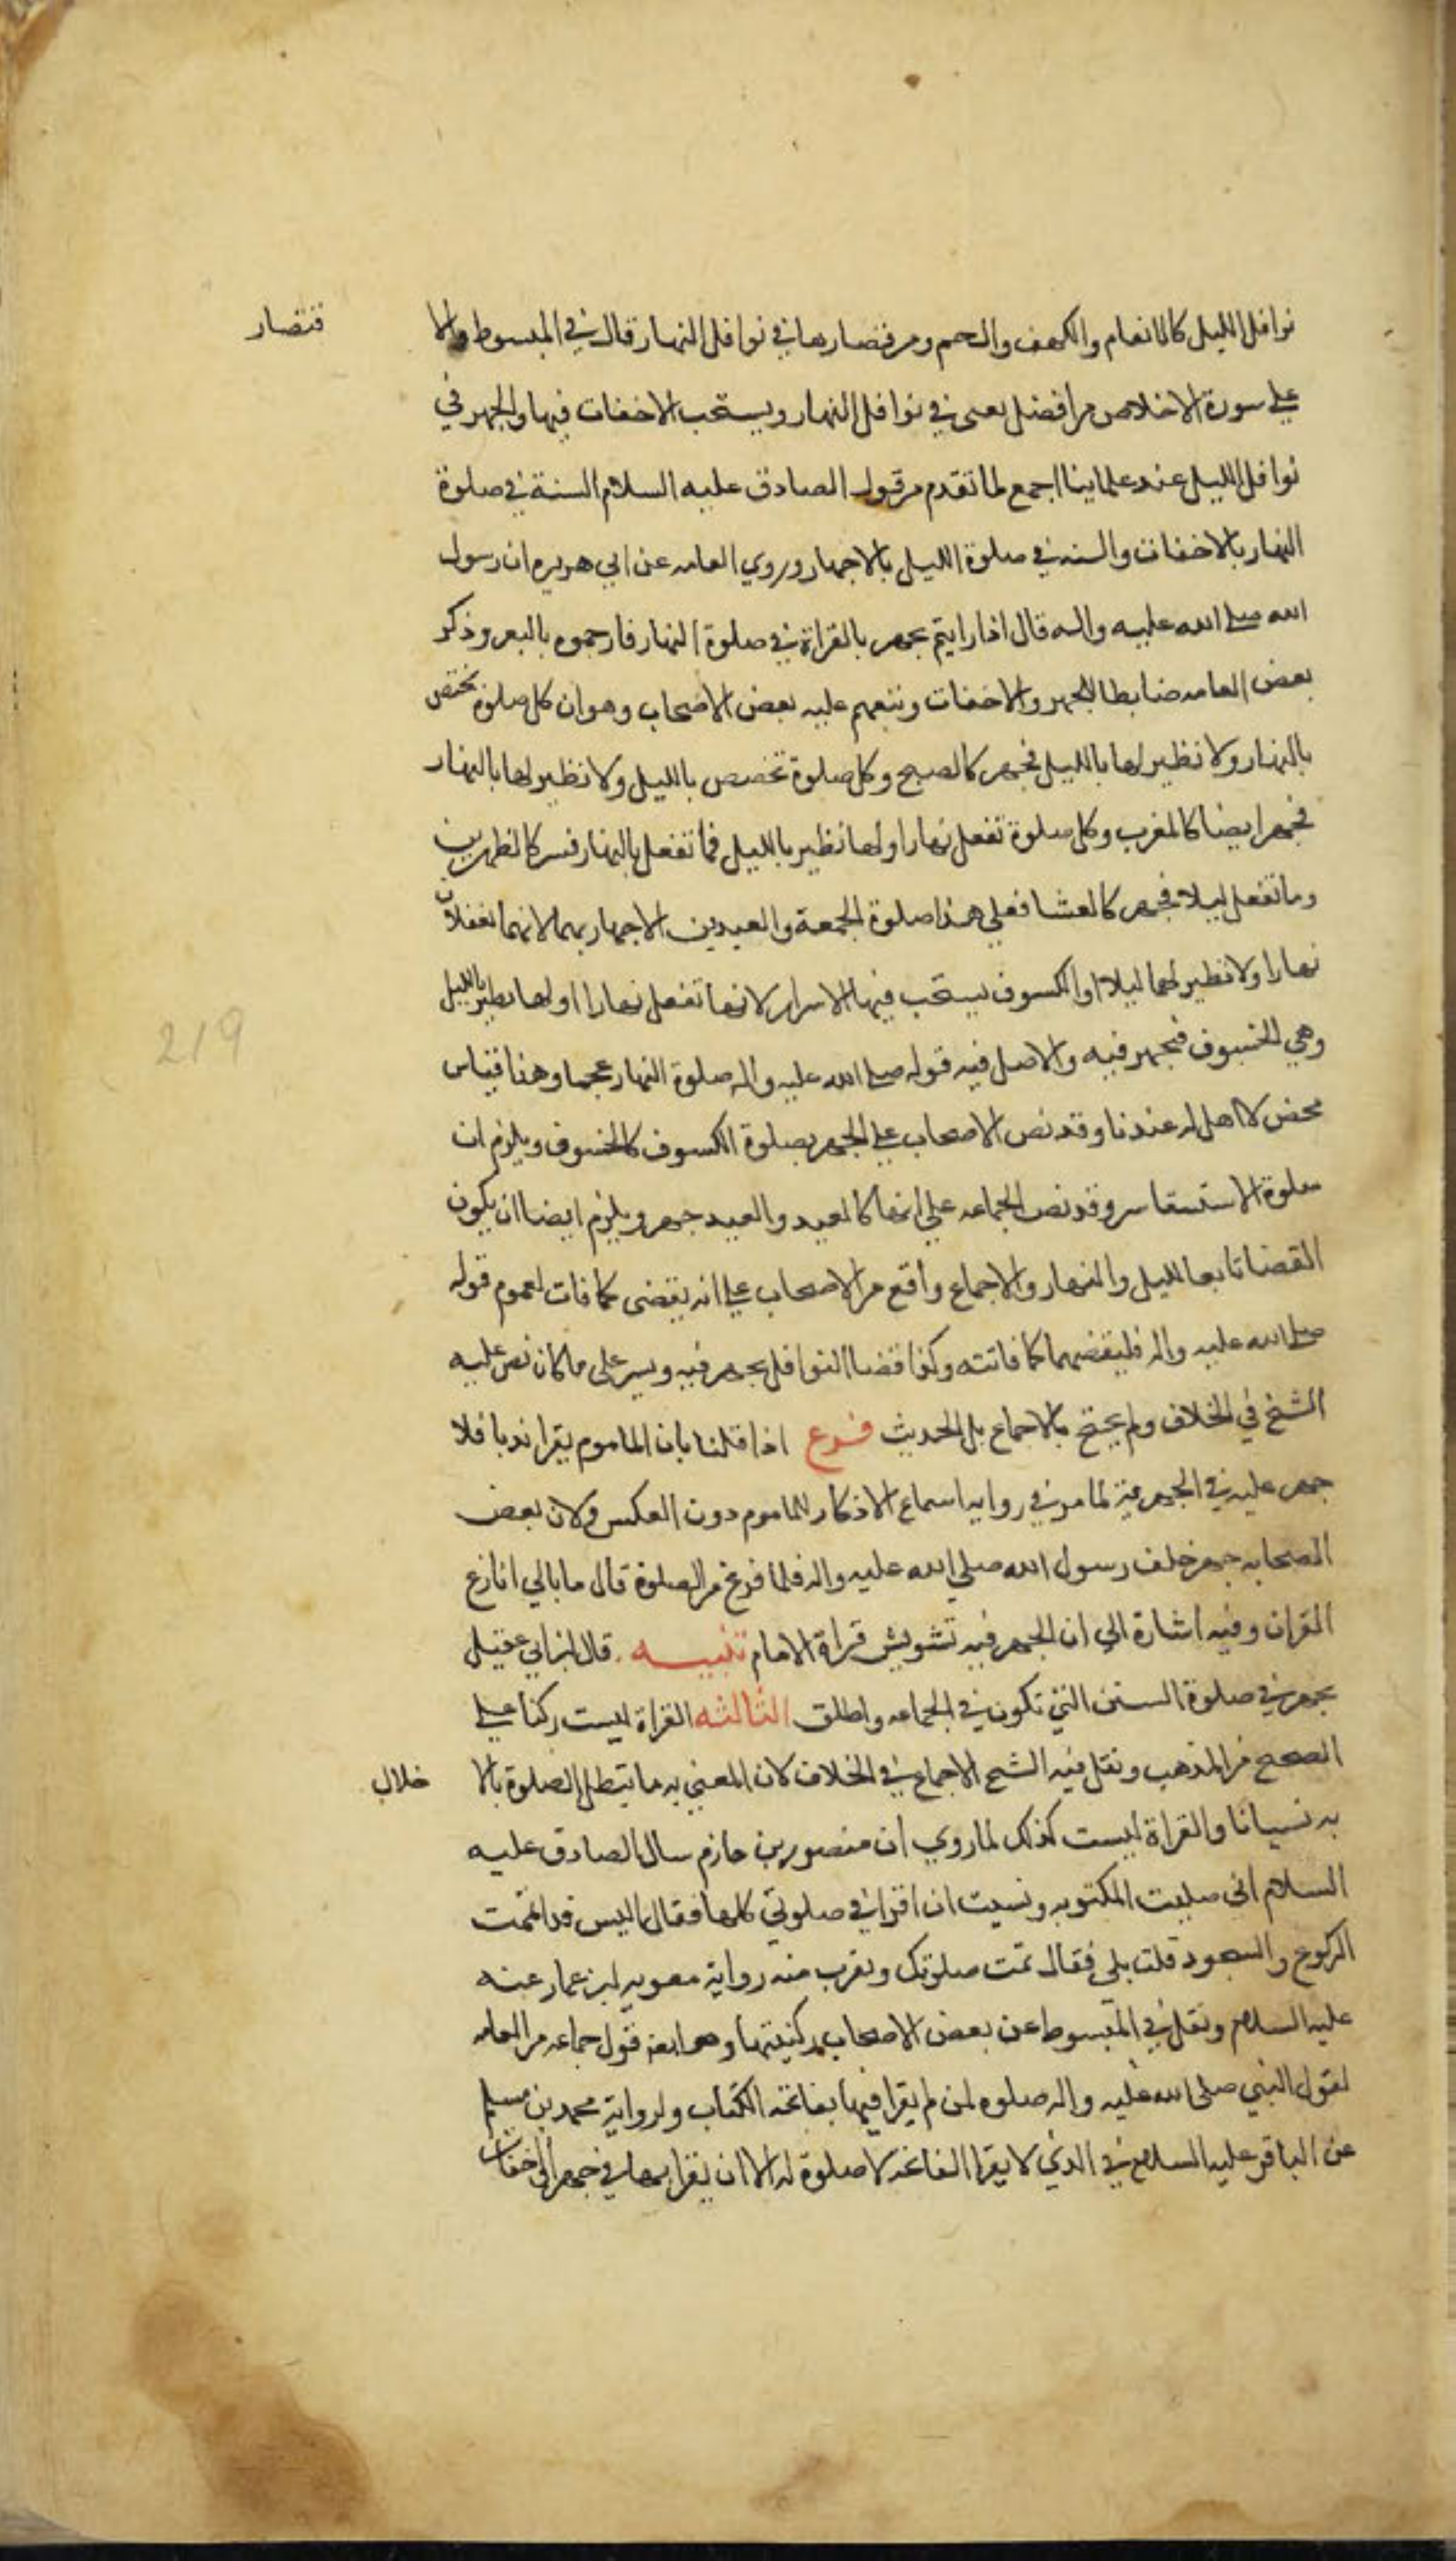 نوافل الليل كالانعام والكهف والحم ومن قصارها في نوافل النهار قال في المبسوط والا قتصار
على سورة الاخلاص مرافضل يعنى في نوافل النهار ويستحب الاخفات فيها والجهر في
نوافل الليل عند علماينا اجمع لما تقدم من قول الصادق عليه السلام السنة في صلوة
النهار بالاخفات والسنه في صلوة الليل بالاجهار وروي العامه عن ابي هريره ان رسول
الله صلى الله عليه واله قال اذا رايتم يجهر بالقراة في صلوة النهار فارجموه بالبعر وذكر
بعض العامه ضابطا للجهر والاخفات وتبعهم عليه بعض الاصحاب وهو ان كل صلوة تختص
بالنهار ولا نظير لها بالليل فجهر كالصبح وكل صلوة تختص بالليل ولا نظير لها بالنهار
فجهر ايضا كالمغرب وكل صلوة تفعل نهارا ولها نظير بالليل فما تفعل بالنهار فسر كالظهرين
وما تفعل ليلا فجهر كالعشا فعلى هذا صلوة الجمعة والعيدين الاجهار بهما لانهما تفعلان
نهارا ولا نظير لهما ليلا والكسوف يستحب فيها الاسرار لانها تفعل نهارا ولها نظير بالليل
وهي الخسوف فيجهر فيه والاصل فيه قوله صلى الله عليه واله صلوة النهار عجما وهذا قياس
محض لا اصل له عندنا وقد نص الاصحاب على الجهر بصلوة الكسوف كالخسوف ويلزم ان
صلوة الاستسقا سر وقد نص الجماعه علي انها كالعيد والعيد جهر ويلزم ايضا ان يكون
القضا تابعا لليل والنهار والاجماع واقع من الاصحاب على انه يقضى كما فات لعموم قوله
صلى الله عليه واله فليقضهما كما فاتته وكذا قضا النوافل يجهر فيه ويسر على ما كان نص عليه
الشيخ في الخلاف ولم يحتج بالاجماع بل الحديث فرع اذا قلنا بان الماموم يقرا ندبا فلا
جهر عليه في الجهرية لما مر في روايه اسماع الاذكار للماموم دون العكس ولان بعض
الصحابه جهر خلف رسول الله صلي الله عليه واله فلما فرغ من الصلوة قال ما بالي انازع
القران وفيه اشارة الي ان الجهر فيه تشويش قراة الامام تنبيه قال ابن ابي عقيل
يجهر في صلوة السنن التي تكون في الجماعه واطلق الثالثه القراة ليست ركنا على
الصحيح من المذهب ونقل فيه الشيخ الاجماع في الخلاف لان المعني به ما يبطل الصلوة بالا خلال
به نسيانا والقراة ليست كذلك لما روي ان منصور بن حازم سال الصادق عليه
السلام انى صليت المكتوبه ونسيت ان اقرا في صلوتي كلها فقال اليس قد اتممت
الركوع والسجود قلت بلي فقال تمت صلوتك ويقرب منه رواية معويه بن عمار عنه
عليه السلام ونقل في المبسوط عن بعض الاصحاب ركنيتها وهو ايضا قول جماعه من العامه
لقول النبي صلى الله عليه واله صلوه لمن لم يقرا فيها بفاتحه الكتاب ولرواية محمد بن مسلم
عن الباقر عليه السلام في الذي لا يقرا الفاتحه لا صلوة له الا ان يقرا بها في جهر او اخفات
219